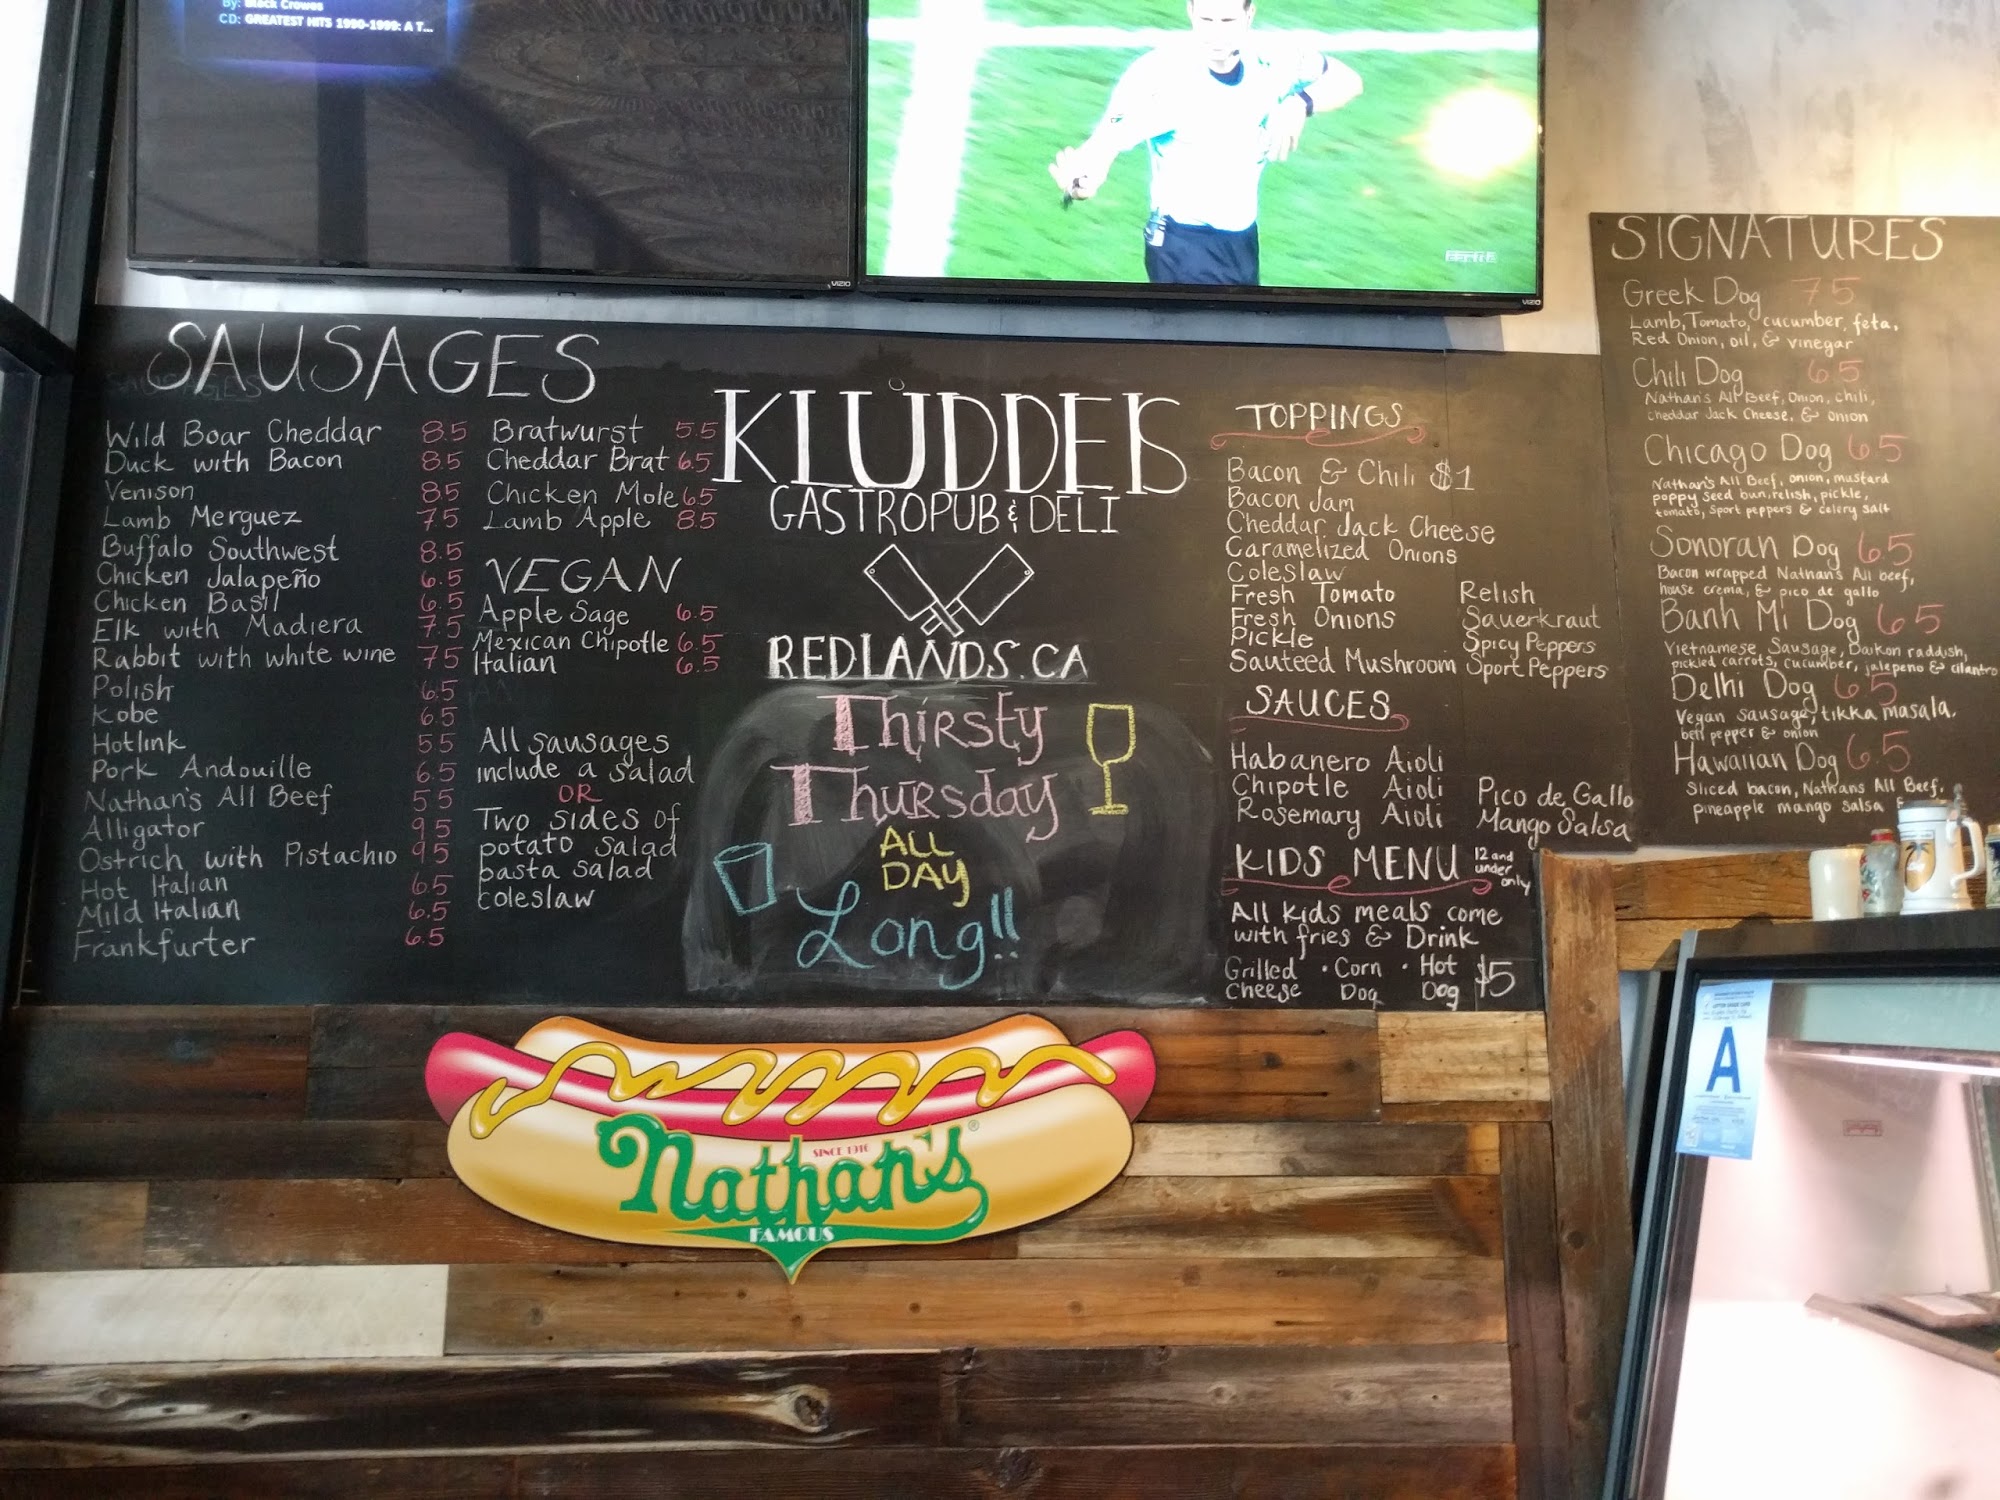 By: Black Crowes
CD: GREATEST HITS 1990-1999: A T...
VIZIO
VIZIO
SAUSAGES
Wild Boar Cheddar 8.5
Duck with Bacon 8.5
Venison 8.5
Lamb Merguez 7.5
Buffalo Southwest 8.5
Chicken Jalapeño 6.5
Chicken Basil 6.5
Elk with Madiera 7.5
Rabbit with white wine 7.5
Polish 6.5
Kobe 6.5
Hotlink 5.5
Pork Andouille 6.5
Nathan's All Beef 5.5
Alligator 9.5
Ostrich with Pistachio 9.5
Hot Italian 6.5
Mild Italian 6.5
Frankfurter 6.5
Bratwurst 5.5
Cheddar Brat 6.5
Chicken Mole 6.5
Lamb Apple 8.5
VEGAN
Apple Sage 6.5
Mexican Chipotle 6.5
Italian 6.5
All sausages
include a salad
OR
Two sides of
potato salad
pasta salad
coleslaw
KLUDDES
GASTROPUB & DELI
REDLANDS.CA
Thirsty
Thursday
ALL
DAY
Long!!
TOPPINGS
Bacon & Chili $1
Bacon Jam
Cheddar Jack Cheese
Caramelized Onions
Coleslaw
Fresh Tomato
Fresh Onions
Pickle
Sauteed Mushroom
Relish
Sauerkraut
Spicy Peppers
Sport Peppers
SAUCES
Habanero Aioli
Chipotle Aioli
Rosemary Aioli
Pico de Gallo
Mango Salsa
KIDS MENU 12 and under only
All kids meals come
with fries & Drink
Grilled Cheese · Corn Dog · Hot Dog $5
SIGNATURES
Greek Dog 7.5
Lamb, Tomato, cucumber, feta,
Red Onion, oil, & vinegar
Chili Dog 6.5
Nathan's All Beef, Onion, Chili,
Cheddar Jack Cheese, & onion
Chicago Dog 6.5
Nathan's All Beef, onion, mustard
poppy seed bun, relish, pickle,
tomato, sport peppers & celery salt
Sonoran Dog 6.5
Bacon wrapped Nathan's All beef,
house crema, & pico de gallo
Banh Mi Dog 6.5
Vietnamese Sausage, Daikon raddish,
pickled carrots, cucumber, jalepeno & cilantro
Delhi Dog 6.5
Vegan sausage, tikka masala,
bell pepper & onion
Hawaiian Dog 6.5
Sliced bacon, Nathans All Beef,
pineapple mango salsa
A
SINCE 1916
Nathan's®
FAMOUS